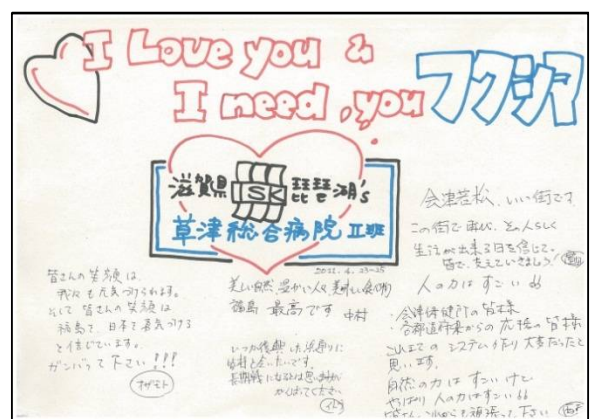 I Love you &
I need, you フクシマ
滋賀県 SK 琵琶湖's
草津総合病院 Ⅱ班
2011. 4. 23~25
皆さんの笑顔は
我々も元気づけられます。
そして 皆さんの笑顔は
福島を、日本を勇気づける
と信じています。
ガンバって下さい!!!
美しい自然、温かい人々、美味しい食べ物
福島 最高です 中村
いつか復興した浜通りに
長期戦になるとは思いますが
がんばってください
会津若松、いい街です
この街で再び、その人らしく
生活が出来る日を信じて。
皆で、支えていきましょう!
人の力は すごい
・会津保健所の皆様
・各都道府県からの応援の皆様
これまでのシステム作り大変だったと
思います。
自然の力は すごいけど
やっぱり 人の力はすごい
頑張って下さい